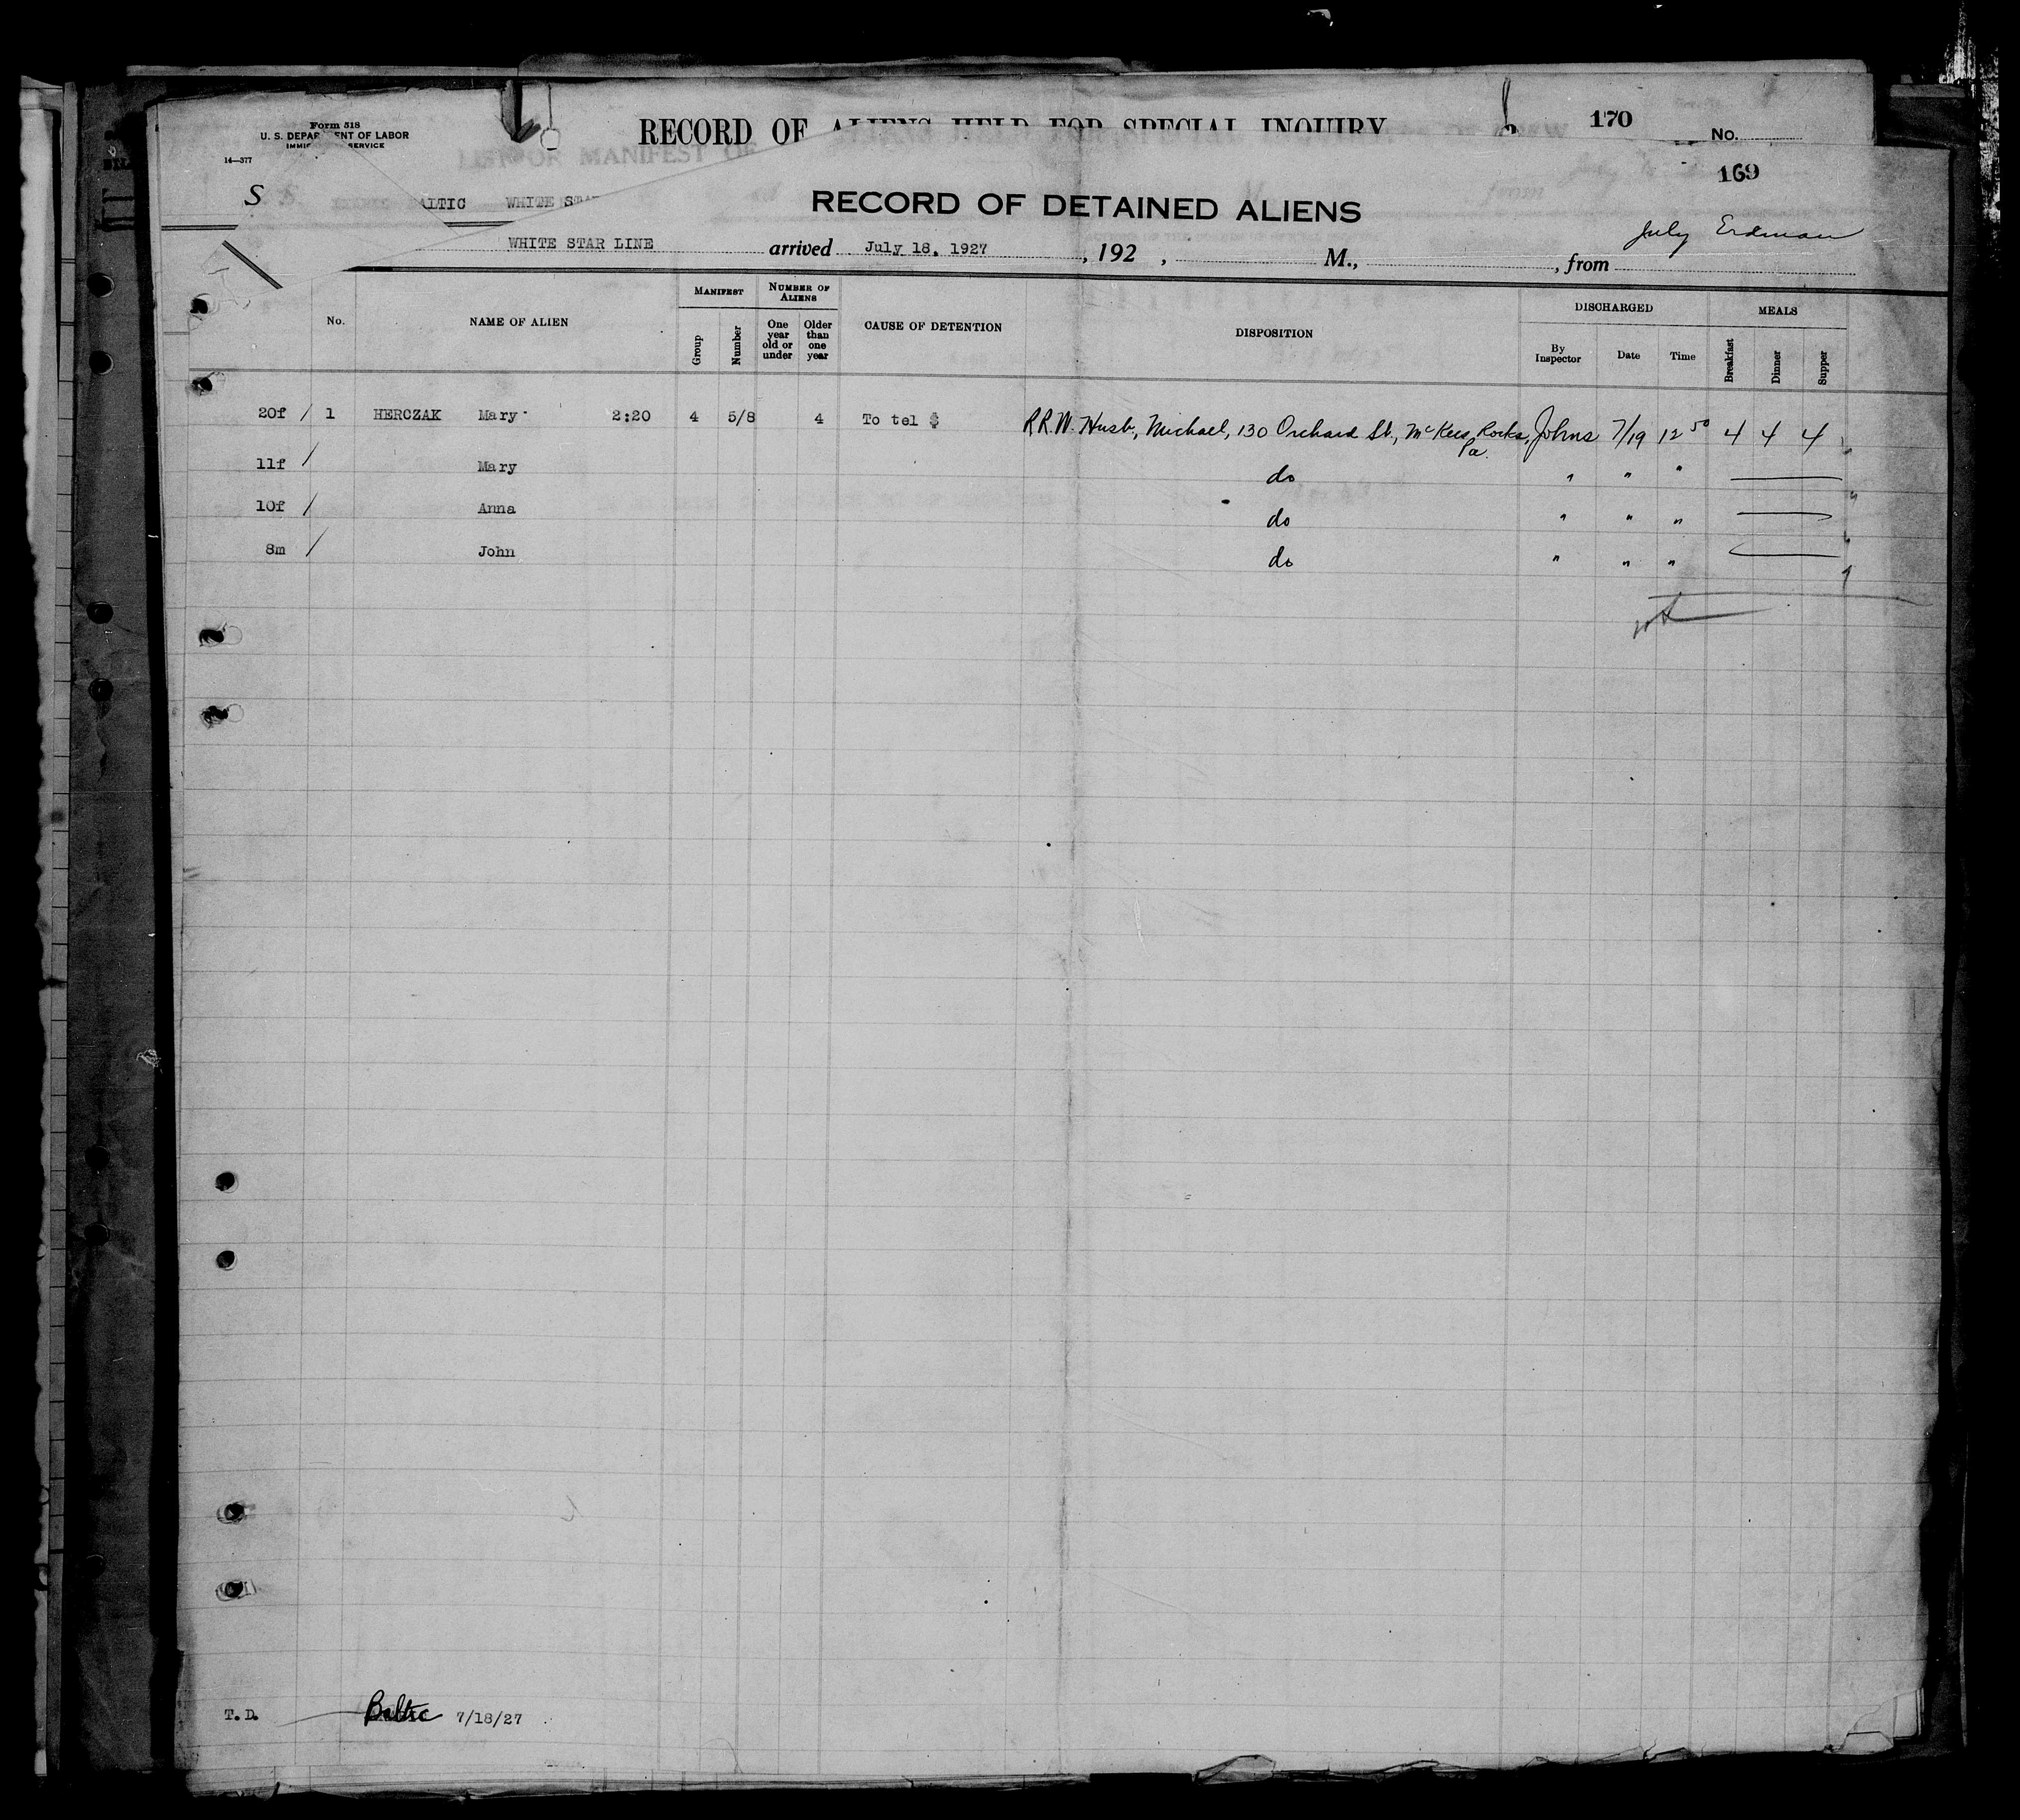 Form 518
U. S. DEPAR ENT OF LABOR
IMMIG SERVICE
14—377
RECORD OF ALIENS HELD FOR SPECIAL INQUIRY
170
No.
LIST OR MANIFEST OF
169
S
ALTIC WHITE STA
RECORD OF DETAINED ALIENS
July Erdman
WHITE STAR LINE arrived July 18, 1927 , 192 , M., , from
No. NAME OF ALIEN MANIFEST Group Number NUMBER OF ALIENS One year old or under Older than one year CAUSE OF DETENTION DISPOSITION DISCHARGED By Inspector Date Time MEALS Breakfast Dinner Supper
20f / 1 HERCZAK Mary 2:20 4 5/8 4 To tel $ R.R.W. Husb., Michael, 130 Orchard St., McKees Rocks, Pa. Johns 7/19 12 50 4 4 4
11f / Mary do " " "
10f / Anna do " " "
8m / John do " " "
T. D. Baltic 7/18/27